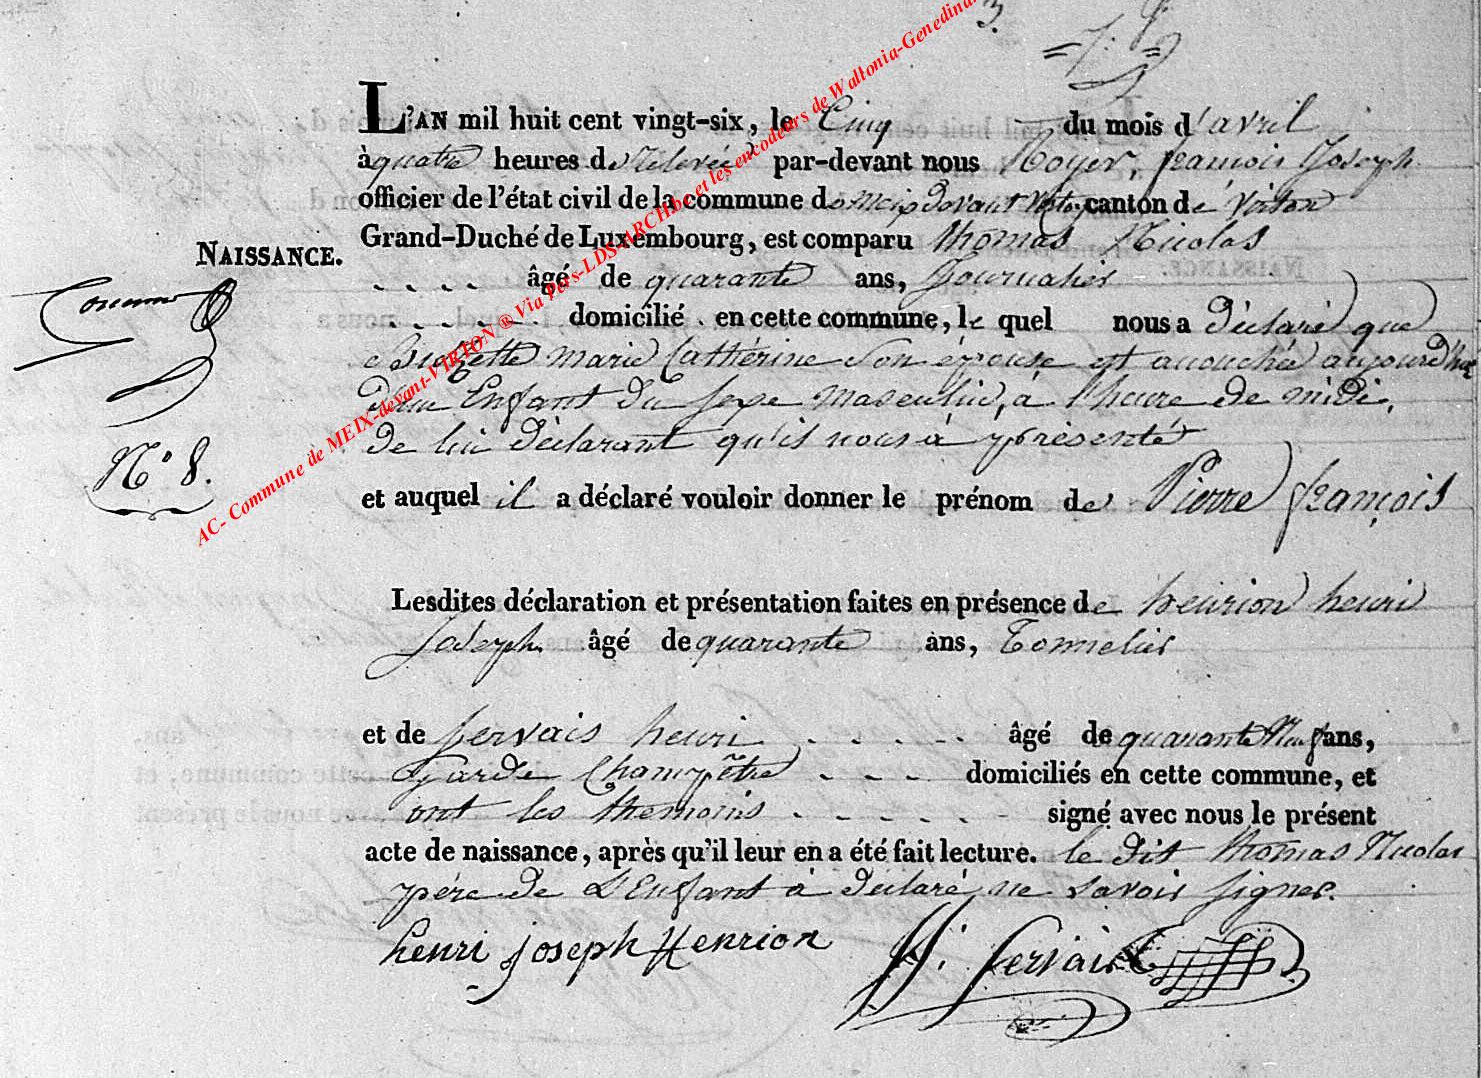 3.
L'AN mil huit cent vingt-six, le Cinq du mois d'avril
à quatre heures de relevée par-devant nous Noyer, françois Joseph
officier de l'état civil de la commune de meix devant virton canton de virton
Grand-Duché de Luxembourg, est comparu thomas Nicolas
NAISSANCE.
âgé de quarante ans, Journalier
domicilié en cette commune, le quel nous a déclaré que
marie Cathérine son épouse est accouchée aujourd'hui
d'un Enfant du sexe masculin, à l'heure de midi,
de lui déclarant qu'il nous à présenté
N° 8.
et auquel il a déclaré vouloir donner le prénom de Pierre françois
Lesdites déclaration et présentation faites en présence de henrion henri
Joseph âgé de quarante ans, Tonnelier
et de gervais henri âgé de quarante Neuf ans,
garde Champêtre domiciliés en cette commune, et
ont les themoins signé avec nous le présent
acte de naissance, après qu'il leur en a été fait lecture. le dit thomas Nicolas
pére de L'Enfant à déclaré ne savoir signer.
henri joseph Henrion H. gervais
AC- Commune de MEIX-devant-VIRTON ® Via Pers-LDS-ARCHbe et les encodeurs de Waltonia-Genedina